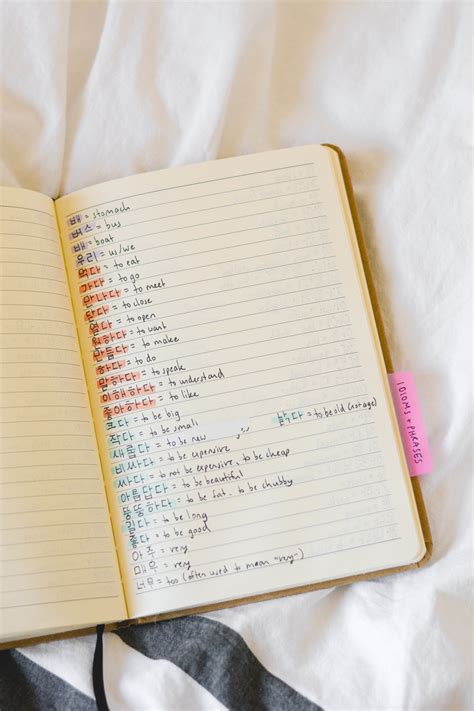 배 = stomach
버스 = bus
배 = boat
우리 = us/we
먹다 = to eat
가다 = to go
만나다 = to meet
닫다 = to close
열다 = to open
원하다 = to want
만들다 = to make
하다 = to do
말하다 = to speak
이해하다 = to understand
좋아하다 = to like
크다 = to be big
작다 = to be small
낡다 = to be old (not age)
새롭다 = to be new
비싸다 = to be expensive
싸다 = to not be expensive, to be cheap
아름답다 = to be beautiful
뚱뚱하다 = to be fat, to be chubby
길다 = to be long
좋다 = to be good
아주 = very
매우 = very
너무 = too (often used to mean "very")
IDIOMS + PHRASES